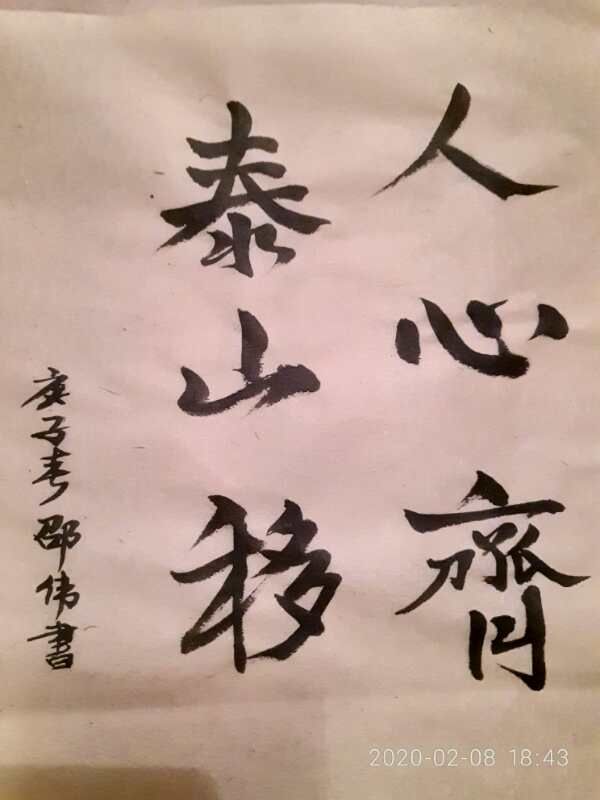 人心齊
泰山移
庚子春邵伟書
2020-02-08 18:43